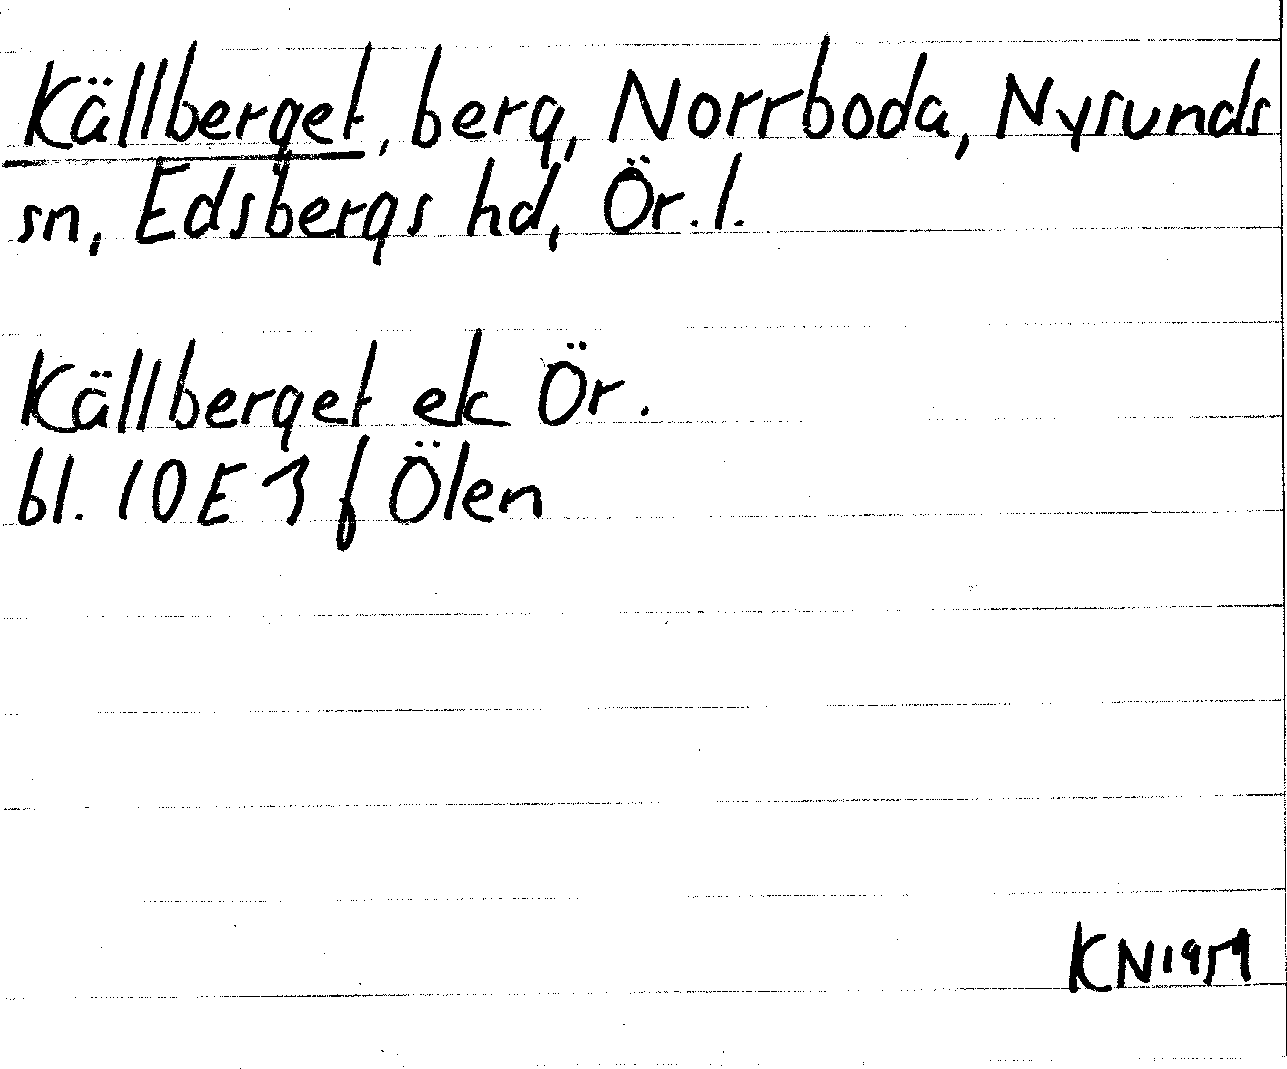 Källberget, berg, Norrboda, Nysunds
sn, Edsbergs hd, Ör. l.
Källberget ek Ör.
bl. 10E 3 f Ölen
KN 1959